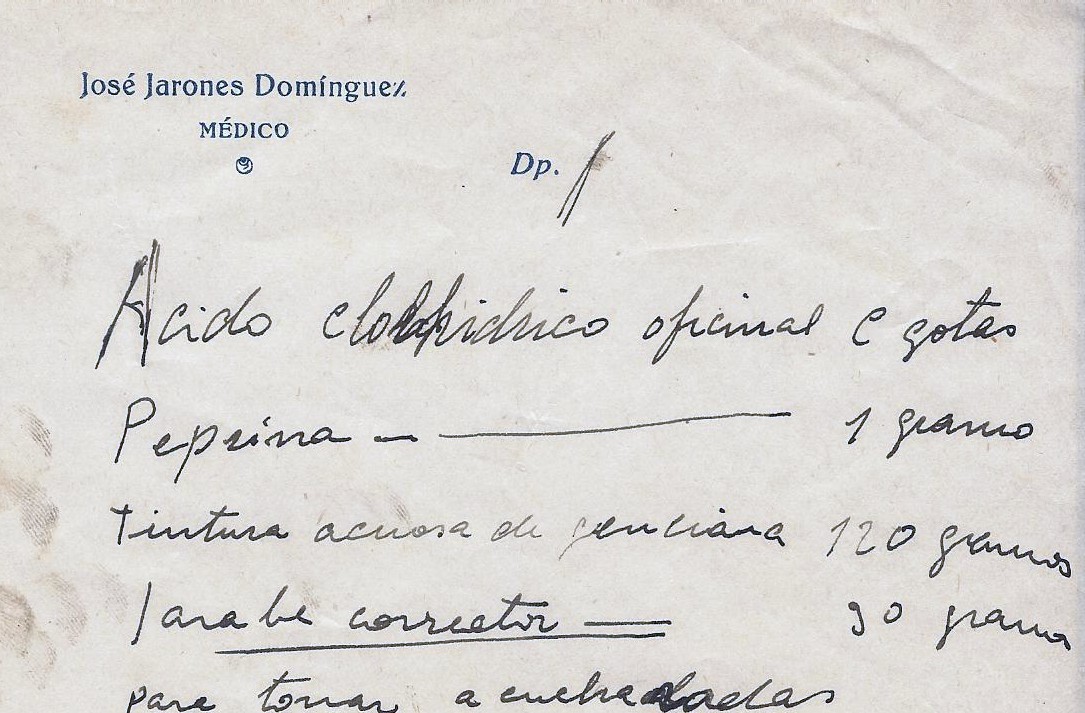 José Jarones Domínguez
MÉDICO
Dp.
Acido clorhidrico oficinal C gotas
Pepsina 1 gramo
tintura acuosa de genciana 120 gramos
Jarabe corrector 90 gramos
para tomar a cucharadas